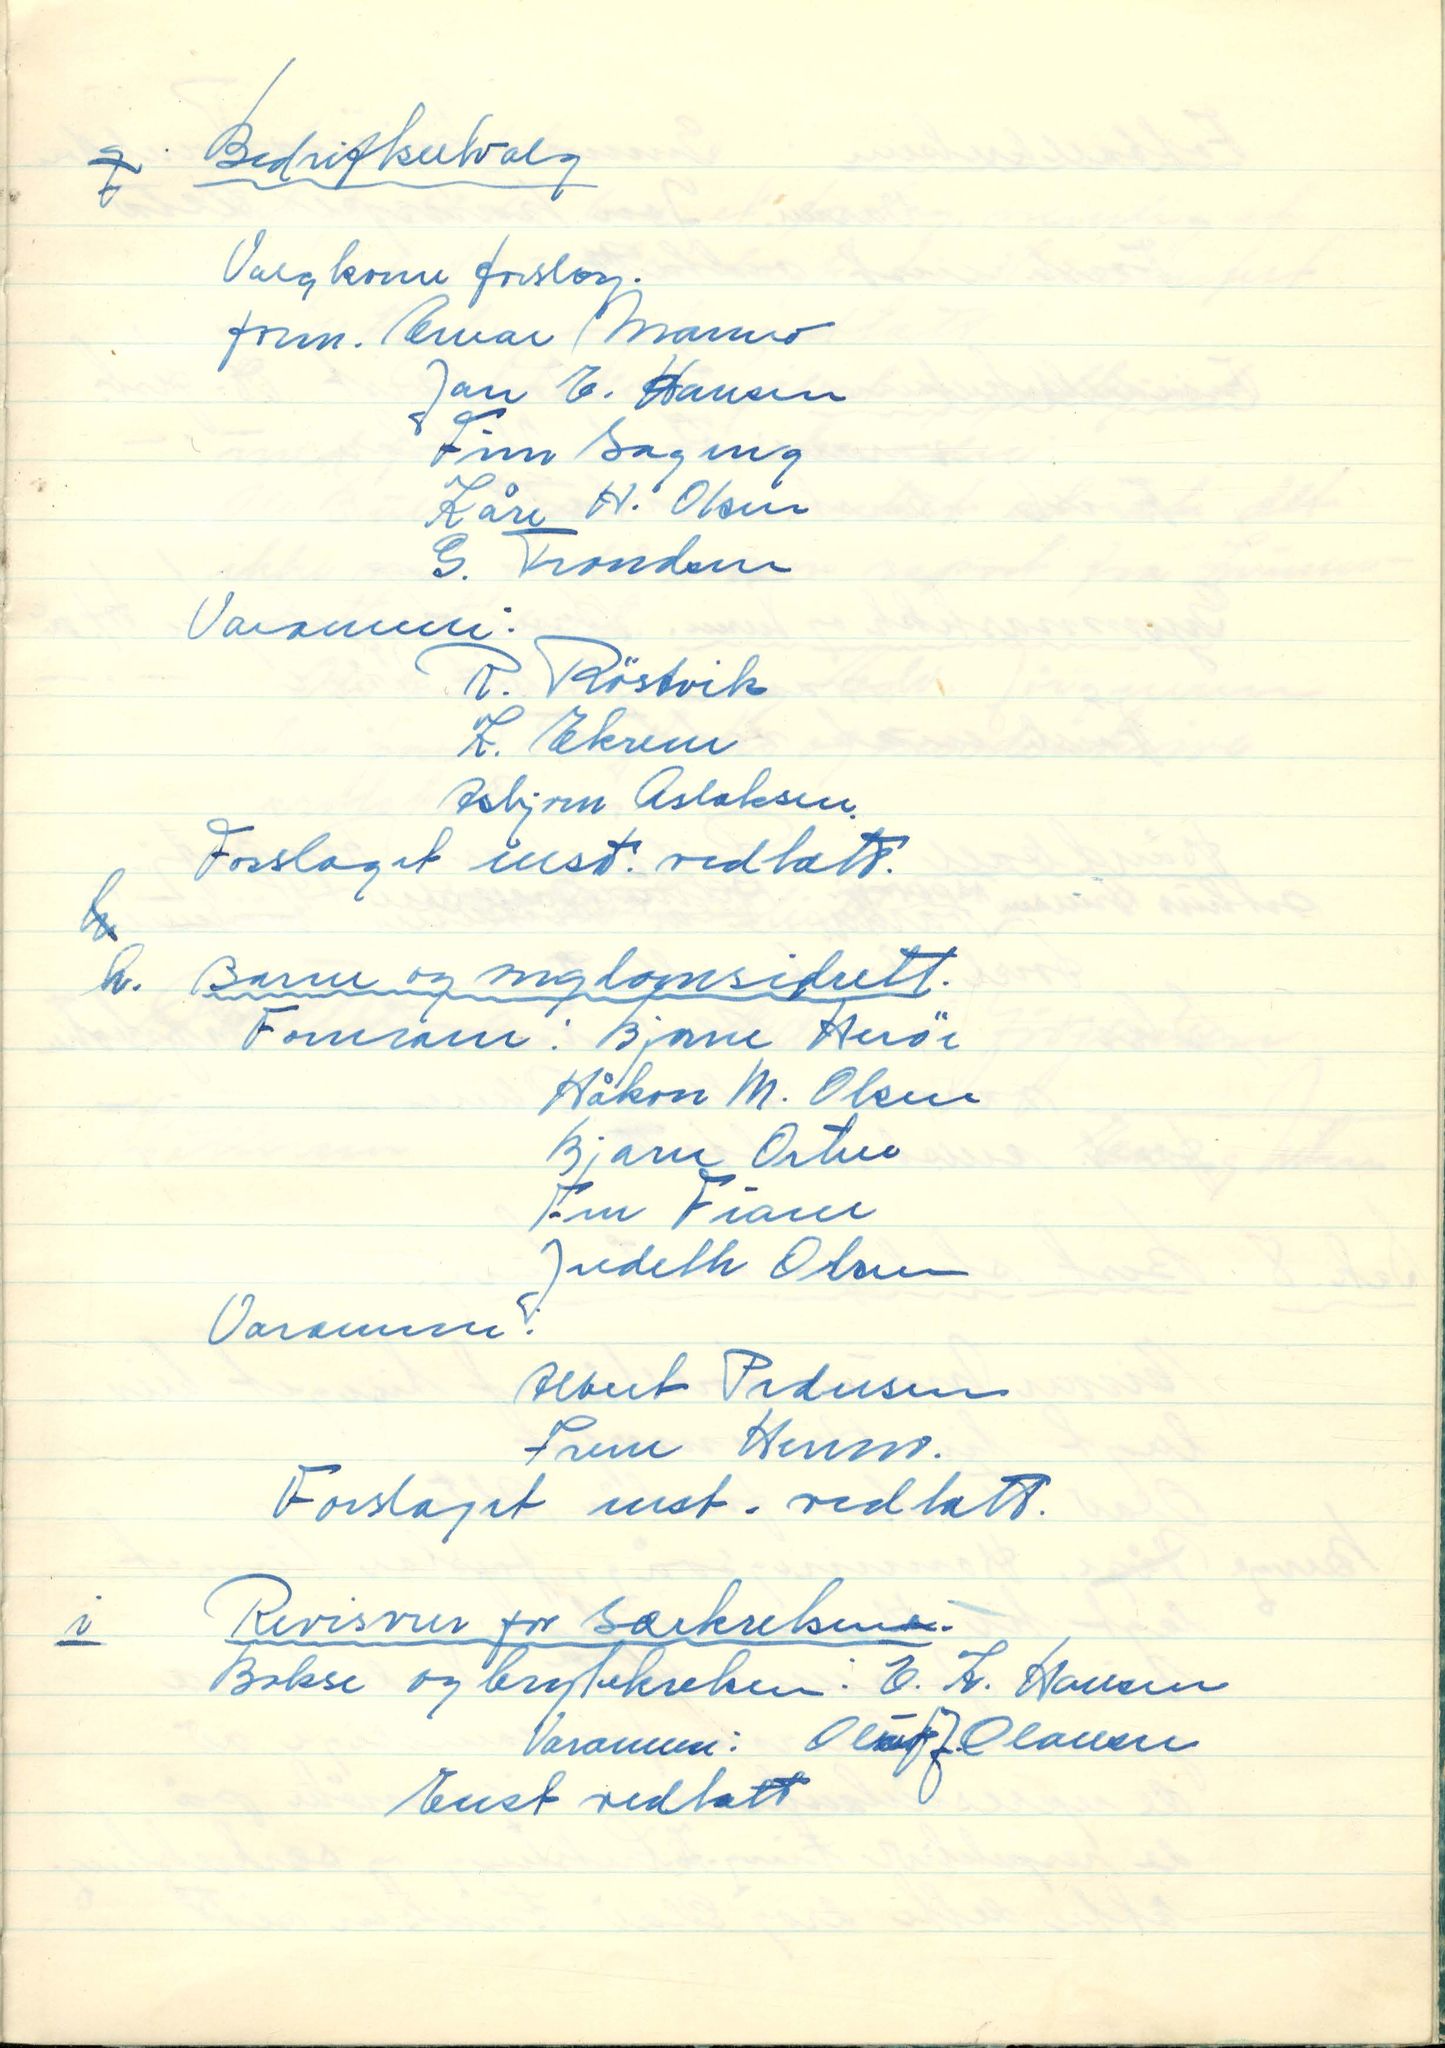 g. Bedriftsutvalg
Valgkom forslag.
form. Einar
Jan E. Hansen
Finn Saging
Kåre H. Olsen
G. Trondsen
Varamenn:
R. Röstvik
K. Ekrem
Asbjørn Aslaksen.
Forslaget enst. vedtatt.
h. Barne og ungdomsidrett.
Formann: Bjarne Heröe
Håkon M. Olsen
Bjarne
Finn
Judeth Olsen
Varamenn:
Albert Pedersen
Forslaget enst. vedtatt.
i Revisorer for Særkretsene.
Bokse og brytekretsen: E. K. Hansen
Varamenn: Olaf J. Olaussen
Enst vedtatt